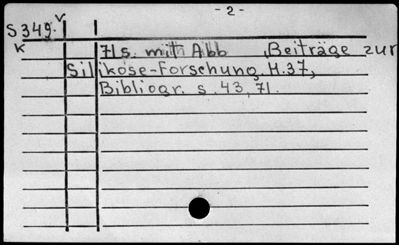 - 2 -
S 349. V
K 71 s. mit Abb ,Beiträge zur
Silikose-Forschung, H.37,
Bibliogr. s. 43, 71.